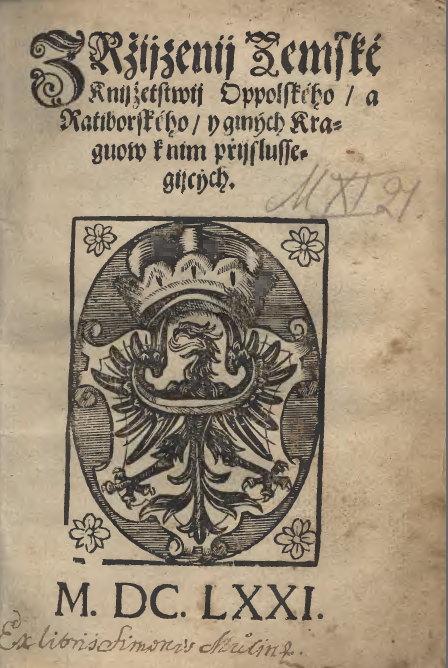 ZRžijzenij Zemſké
Knijžetſtwij Oppolſkého / a
Ratiborſkého / y giných Kra-
guow k nim přijſluſſe-
gijcých.
M XI 21.
M. DC. LXXI.
Ex libris Simonis